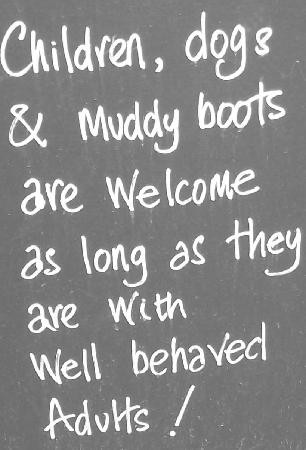 Children, dogs
& Muddy boots
are Welcome
as long as they
are With
Well behaved
Adults!